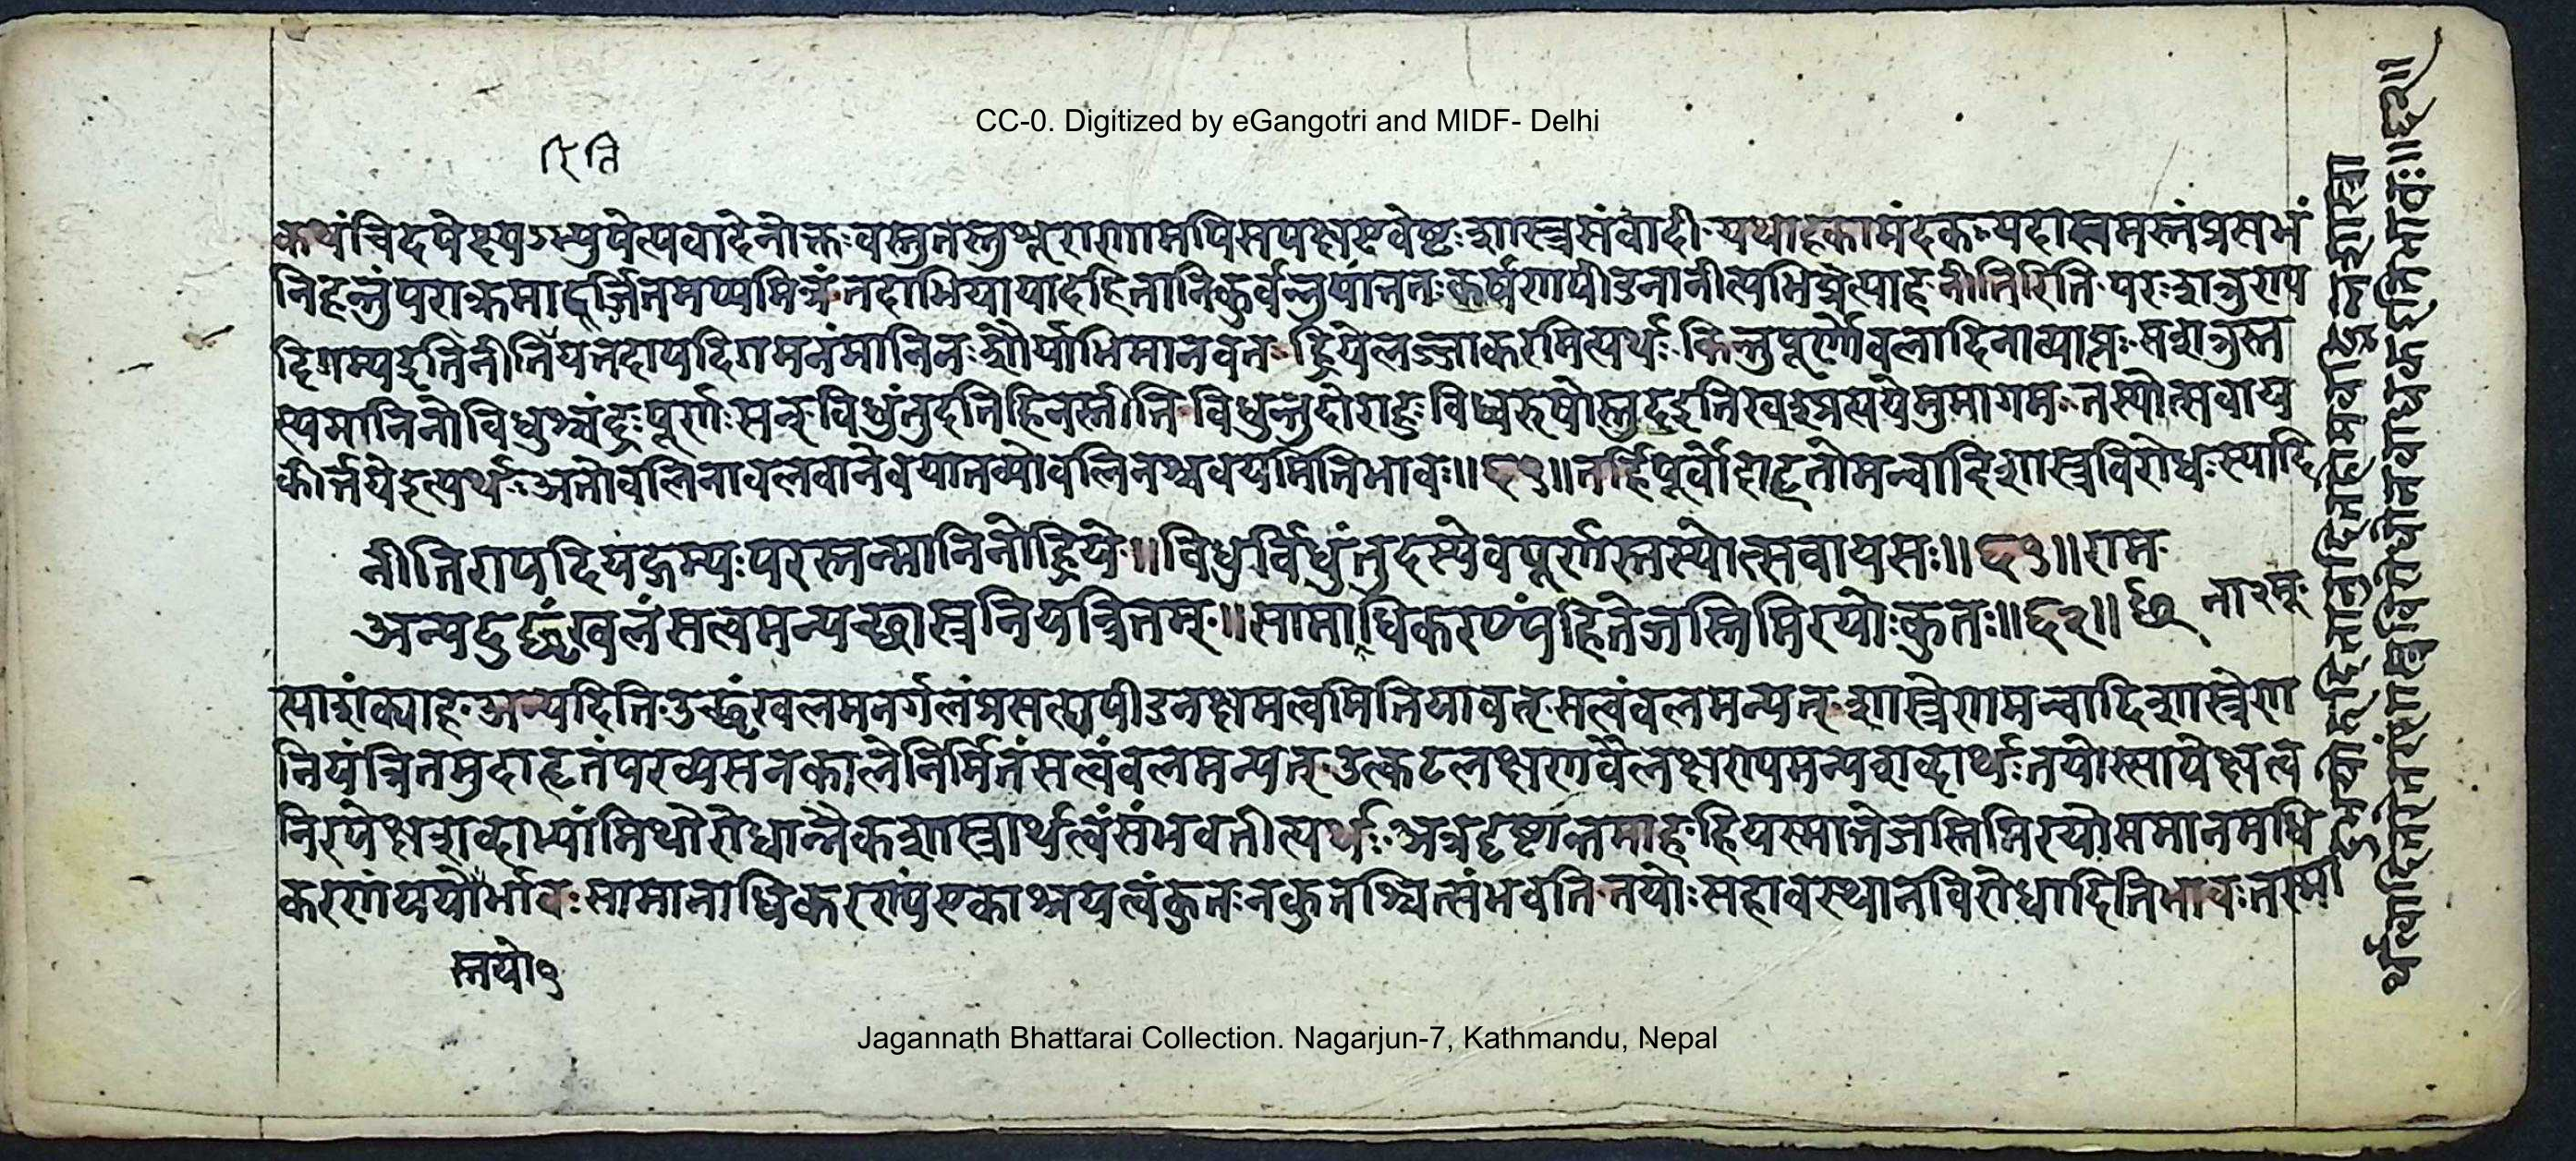 CC-0. Digitized by eGangotri and MIDF- Delhi
रिति
कथंचिदपेक्ष्यऽस्युपेत्यवादेनोक्तःवस्तुतस्तुशूराणामपिसपक्षएवेष्टःशास्त्रसंवादी यथाहकामंदकःयदास्तमस्तंप्रसभं
निहन्तुंपराक्रमादूर्जितमप्यमित्रंतदाभियायादहितानिकुर्वन्नुपांततःकर्षणपीडनानीत्यभिप्रेत्याह नीतिरिति परःशत्रुराप
दिगम्यइतिनीतिर्यत्तदापदिगमनंमानिनःशौर्याभिमानवतः ह्रियेलज्जाकरमित्यर्थःकिन्तुपूर्णोवलादिनाव्याप्तःसशत्रुस्त
स्यमानिनोविधुश्चंद्रःपूर्णःसन् विधुंतुदतिहिनस्तीति विधुन्तुदोराहुःविध्वरुषोस्तुदइतिखश्प्रत्ययेमुमागमःतस्योत्सवाय
कीर्त्तयेइत्यर्थःअतोवलिनावलवानेवयातव्योवलिनश्चवयमितिभावः॥६१॥तर्हिपूर्वोदाहृतोमन्वादिशास्त्रविरोधःस्यादि
नीतिरापदियद्गम्यःपरस्तन्मानिनोह्रिये॥विधुर्विधुंतुदस्येवपूर्णस्तस्योत्सवायसः॥६१॥राम
अन्यदुच्छृंखलंसत्वमन्यच्छास्त्रनियन्त्रितम्॥सामाधिकरण्यंहितेजस्तिमिरयोःकुतः॥६२॥
स्याशंक्याह अन्यदिति उच्छृंखलमनर्गलंप्रसत्ह्यपीडनक्षमत्वमितियावत् सत्वंवलमन्यत् शास्त्रेणमन्वादिशास्त्रेण
नियंत्रितमुदाहृतंपरव्यसनकालेनिर्मितंसत्वंवलमन्यत् उत्कटलक्षणवैलक्षण्यमन्यशब्दार्थःतयोस्सापेक्षत्व
निरपेक्षशब्दाभ्यांमिथोरोधान्नैकशास्त्रार्थत्वंसंभवतीत्यर्थः अत्रदृष्टान्तमाह हियस्मात्तेजस्तिमिरयोसमानमधि
करणंययोर्भावःसामानाधिकरण्यंएकाश्रयत्वंकुतःनकुतश्चित्संभवतितयोःसहावस्थानविरोधादितिभावःतस्मा
स्तयो१
Jagannath Bhattarai Collection. Nagarjun-7, Kathmandu, Nepal